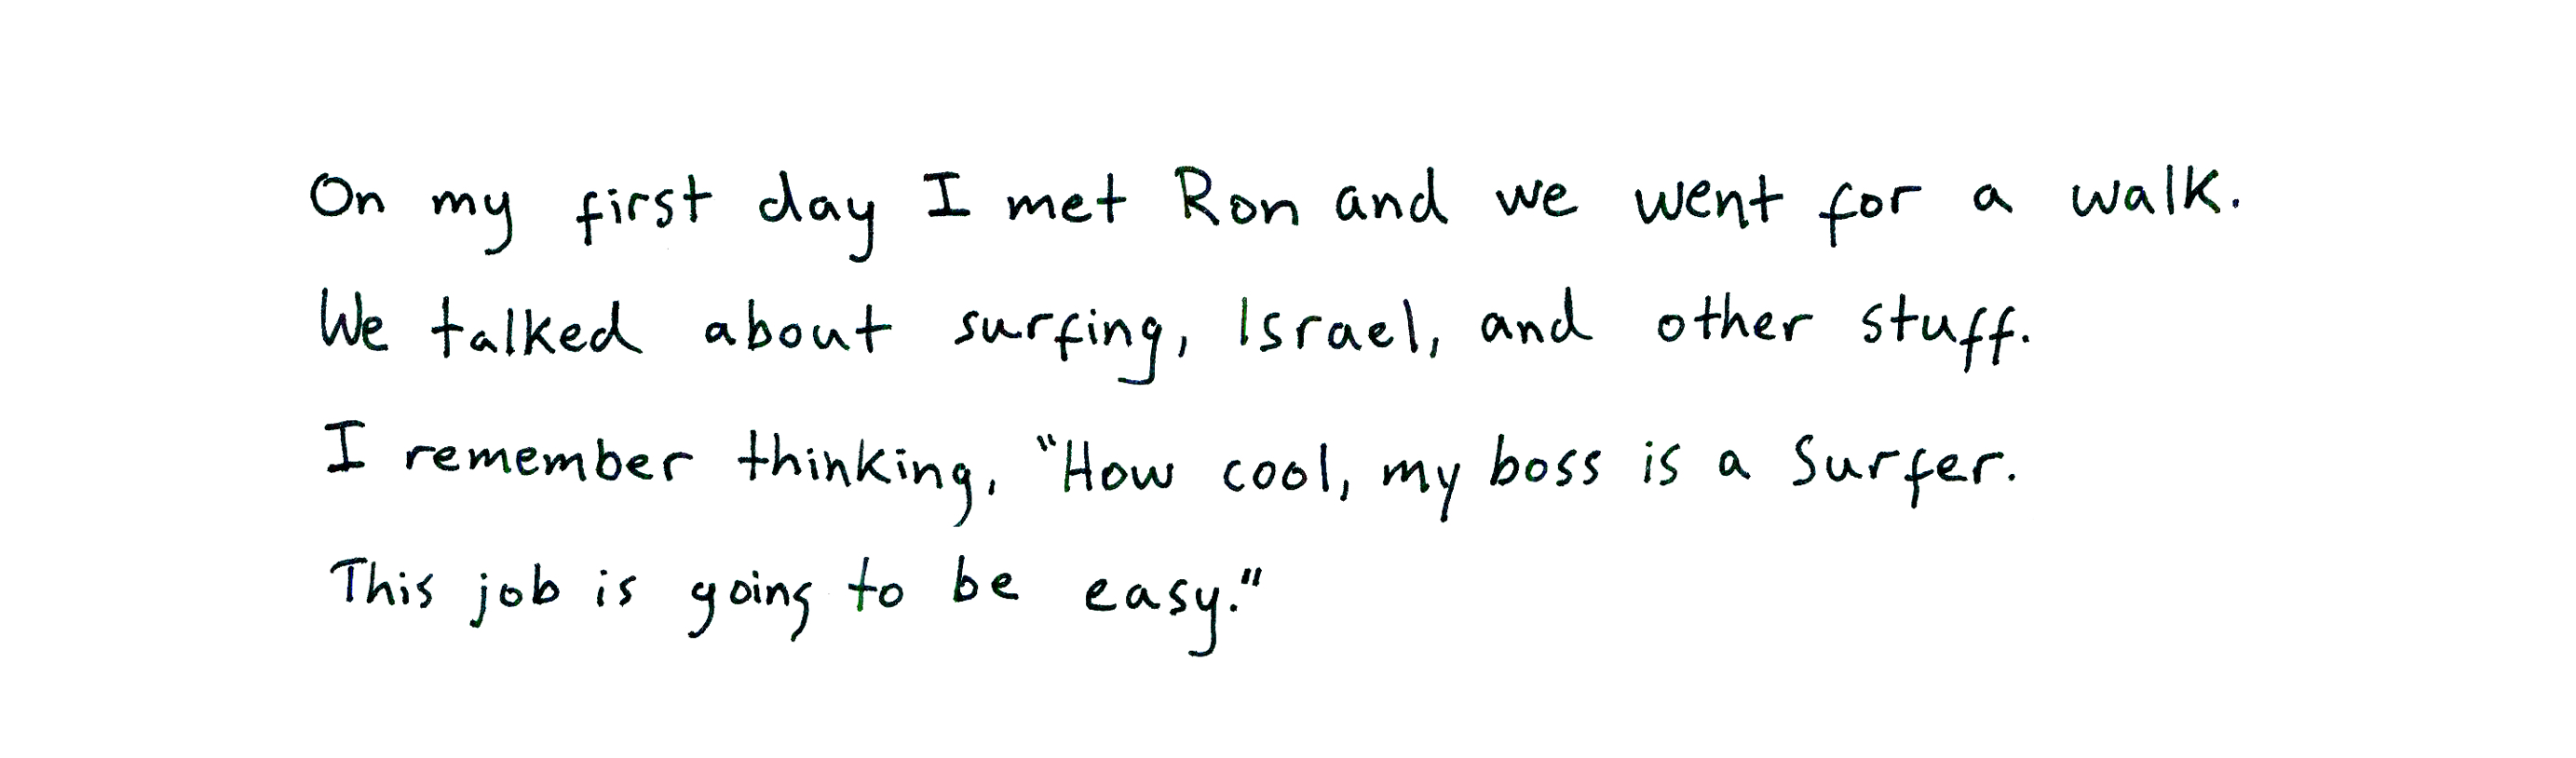 On my first day I met Ron and we went for a walk.
We talked about surfing, Israel, and other stuff.
I remember thinking, "How cool, my boss is a surfer.
This job is going to be easy."